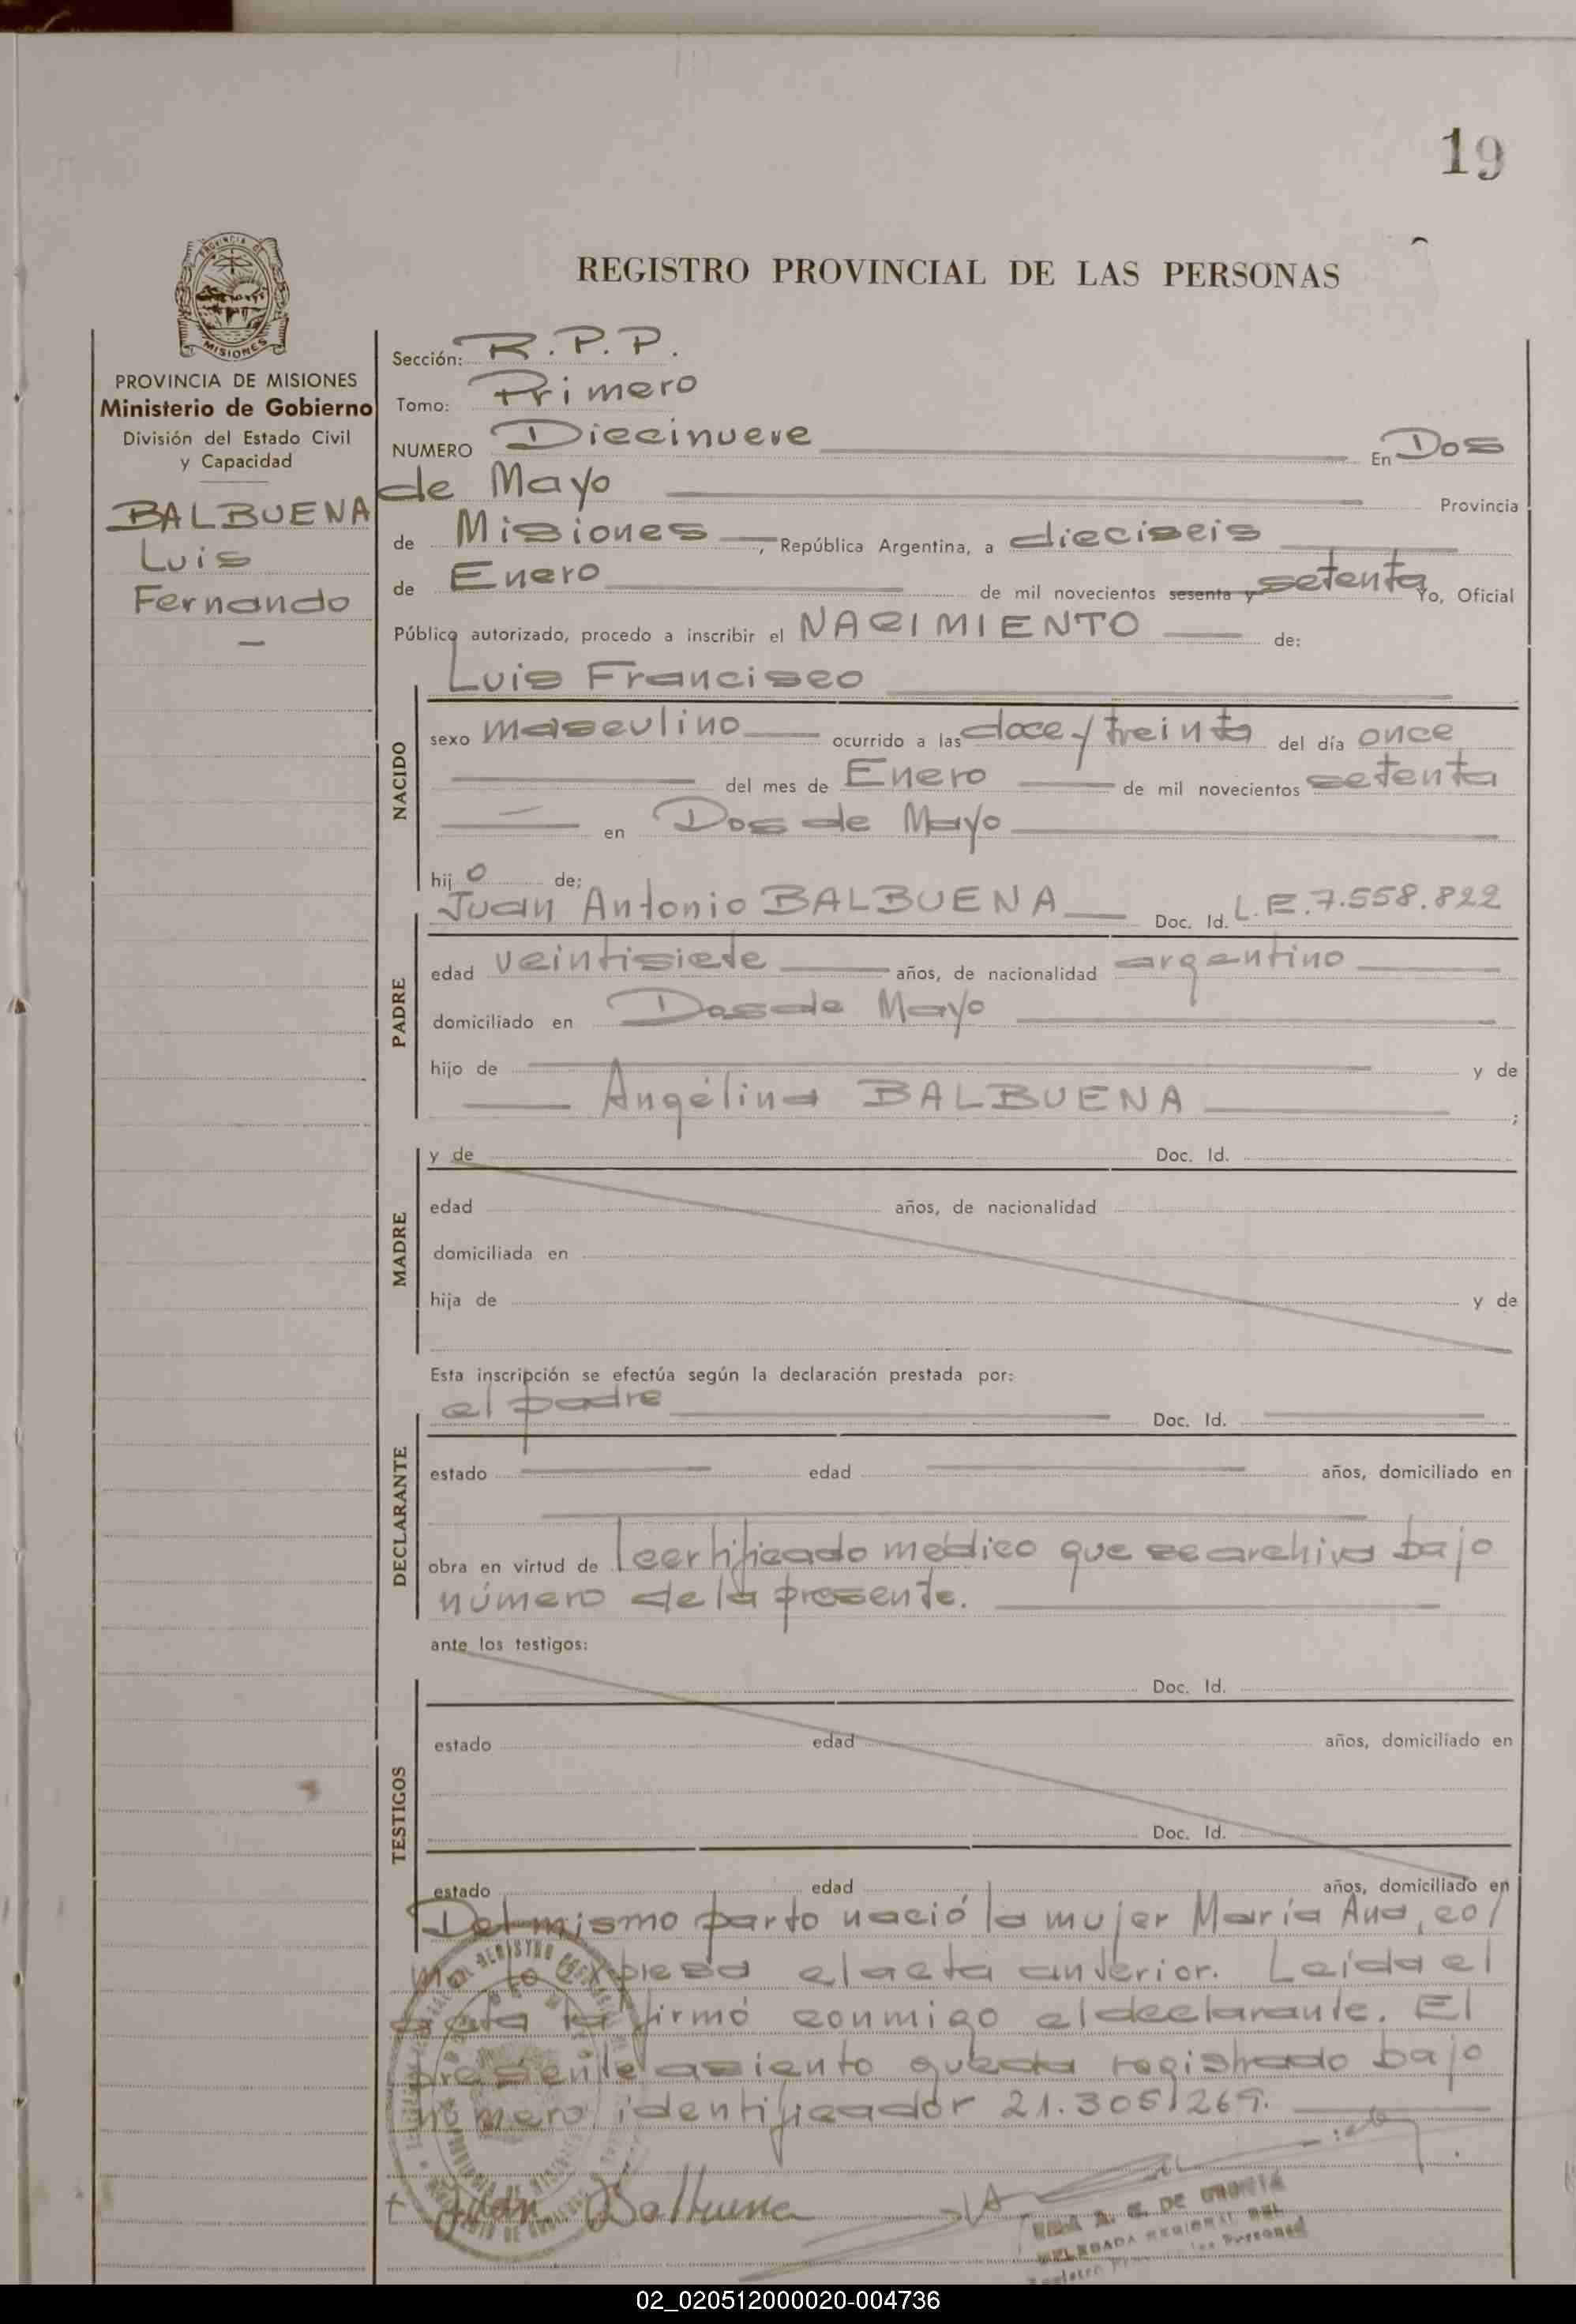 19
REGISTRO PROVINCIAL DE LAS PERSONAS
MISIONES
PROVINCIA DE MISIONES
Ministerio de Gobierno
División del Estado Civil
y Capacidad
BALBUENA
Luis
Fernando
Sección: R.P.P.
Tomo: Primero
NUMERO Diecinueve En Dos
de Mayo Provincia
de Misiones, República Argentina, a dieciseis
de Enero de mil novecientos sesenta y setenta Yo, Oficial
Público autorizado, procedo a inscribir el NACIMIENTO de:
Luis Francisco
NACIDO
sexo masculino ocurrido a las doce y treinta del día once
del mes de Enero de mil novecientos setenta
en Dos de Mayo
hijo de:
Juan Antonio BALBUENA Doc. Id. L.E.7.558.822
PADRE
edad veintisiete años, de nacionalidad argentino
domiciliado en Dos de Mayo
hijo de y de
Angélina BALBUENA ;
MADRE
y de Doc. Id.
edad años, de nacionalidad
domiciliada en
hija de y de
Esta inscripción se efectúa según la declaración prestada por:
el padre Doc. Id.
DECLARANTE
estado edad años, domiciliado en
obra en virtud de certificado médico que se archiva bajo
número de la presente.
ante los testigos:
Doc. Id.
TESTIGOS
estado edad años, domiciliado en
Doc. Id.
estado edad años, domiciliado en
Del mismo parto nació la mujer María Ana, co/
mo lo expresa el acta anterior. Leída el
acta la firmó conmigo el declarante. El
presente asiento queda registrado bajo
número identificador 21.305.269.
Juan Balbuena
DELEGADA REGIONAL DEL
02_020512000020-004736